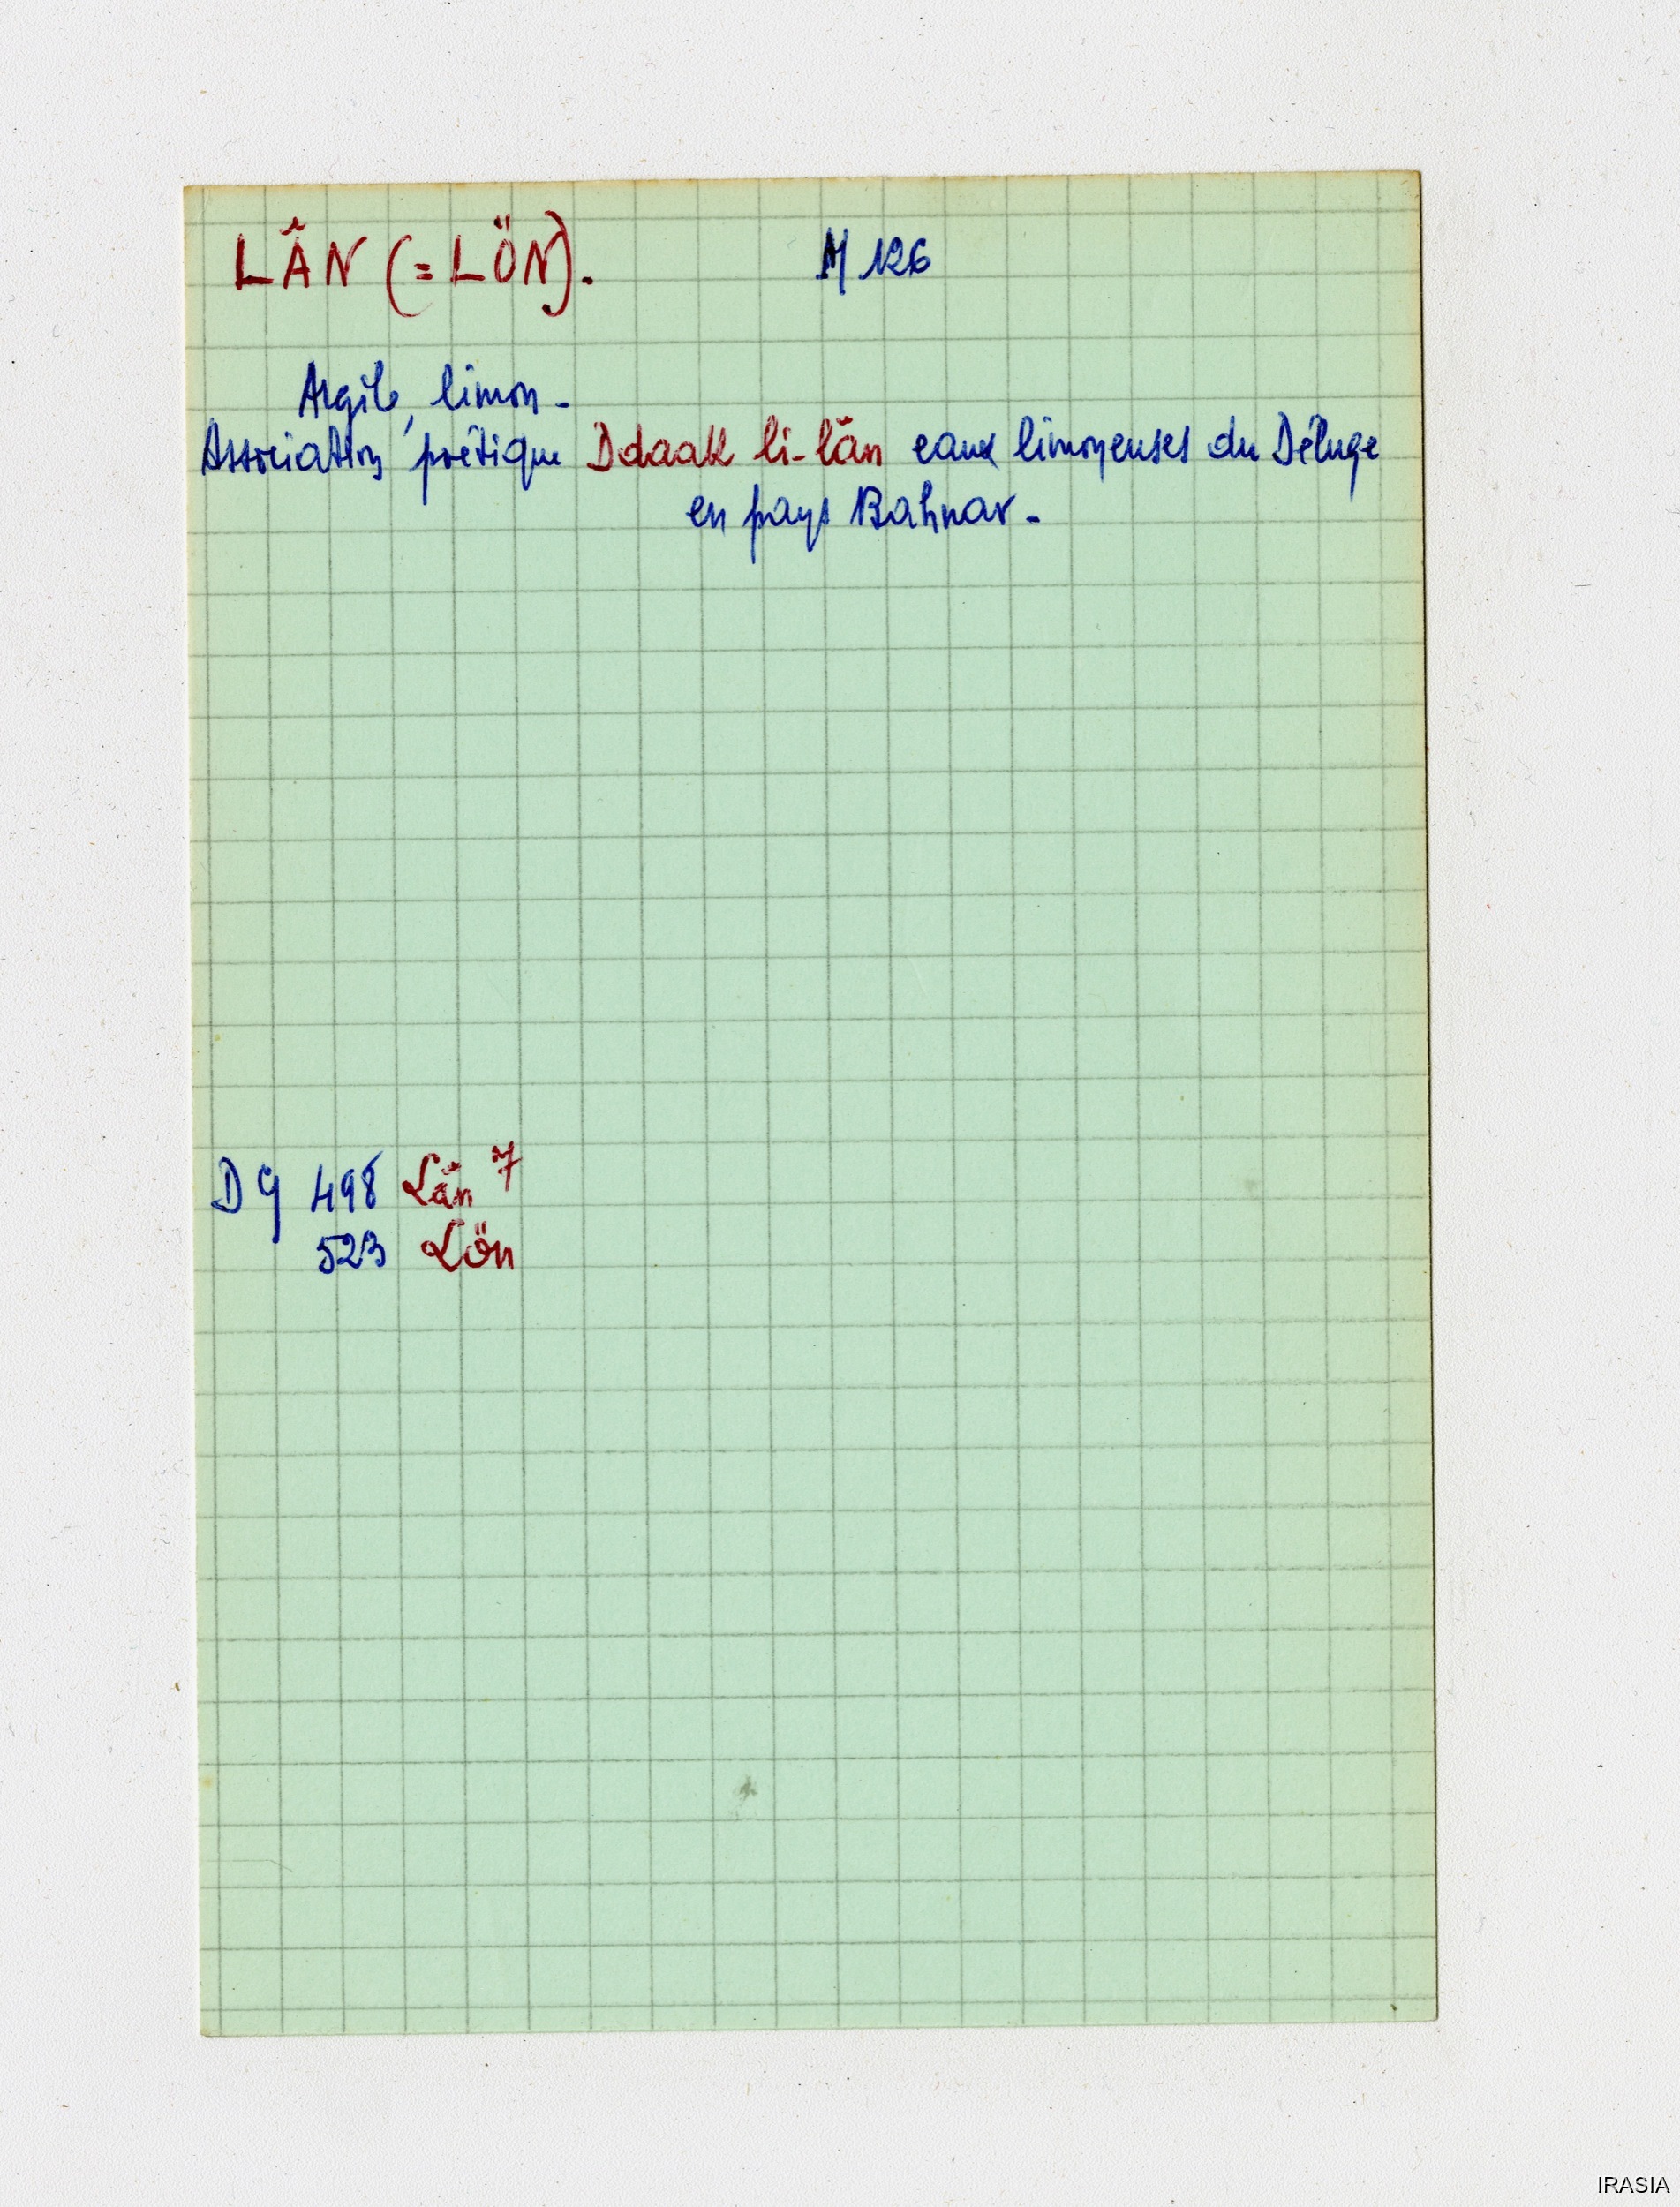 LÂN (= LÖN). M 126
Argile, limon -
Association poétique Ddaak li-lân eaux limoneuses du Déluge
en pays Bahnar -
DG 498 Lân 7
523 Lön
IRASIA